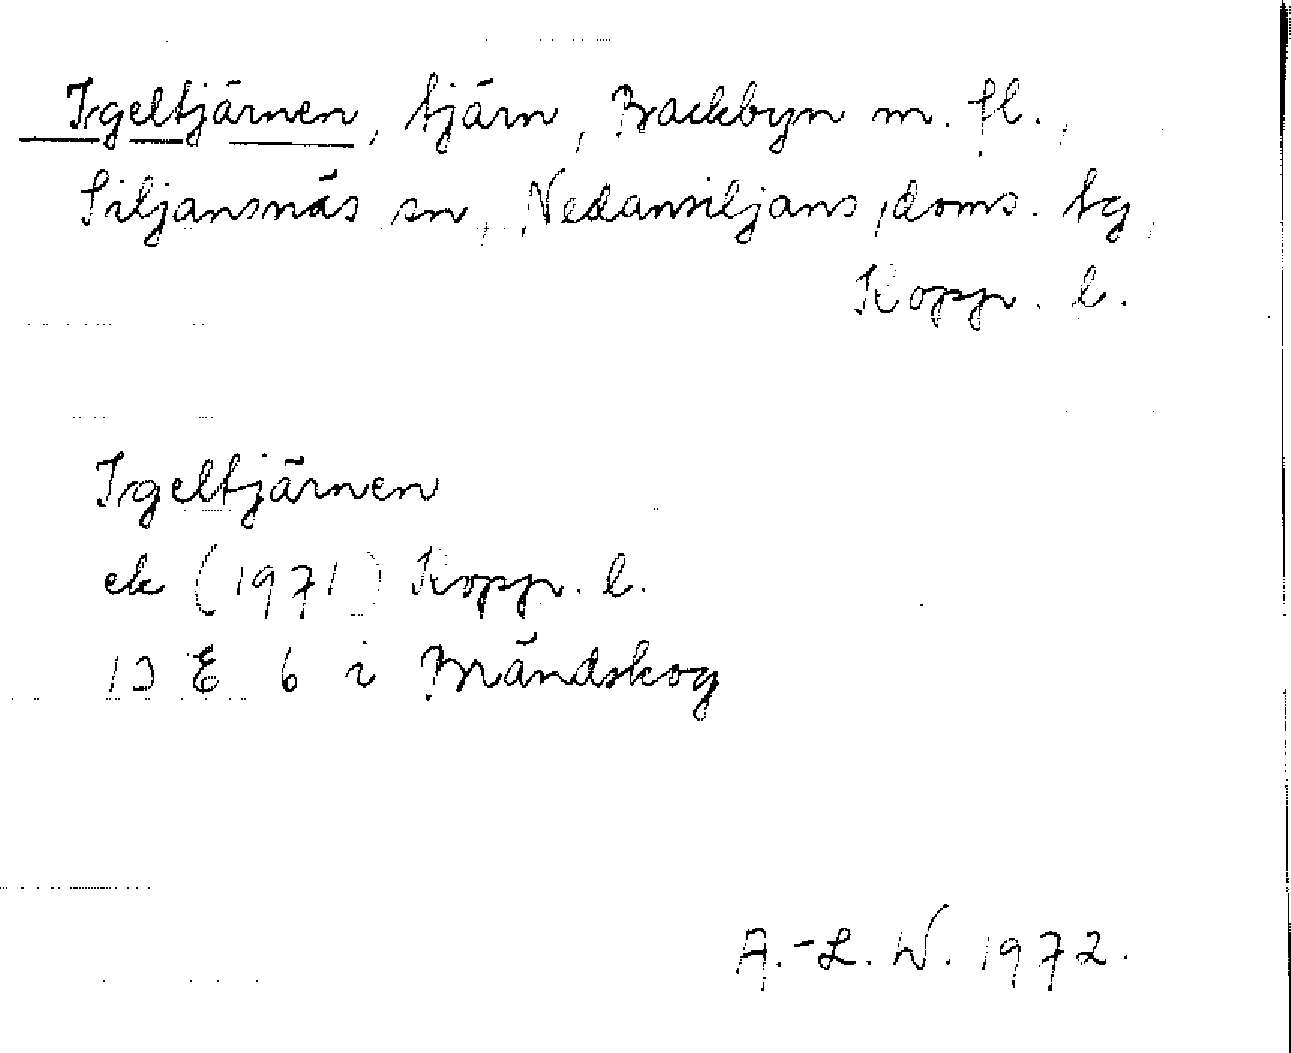 Igeltjärnen, tjärn, Backbyn m. fl.,
Siljansnäs sn, Nedansiljans doms. tg,
Kopp. l.
Igeltjärnen
ek (1971) Kopp. l.
13 E 6 i Brändskog
A.-L. W. 1972.